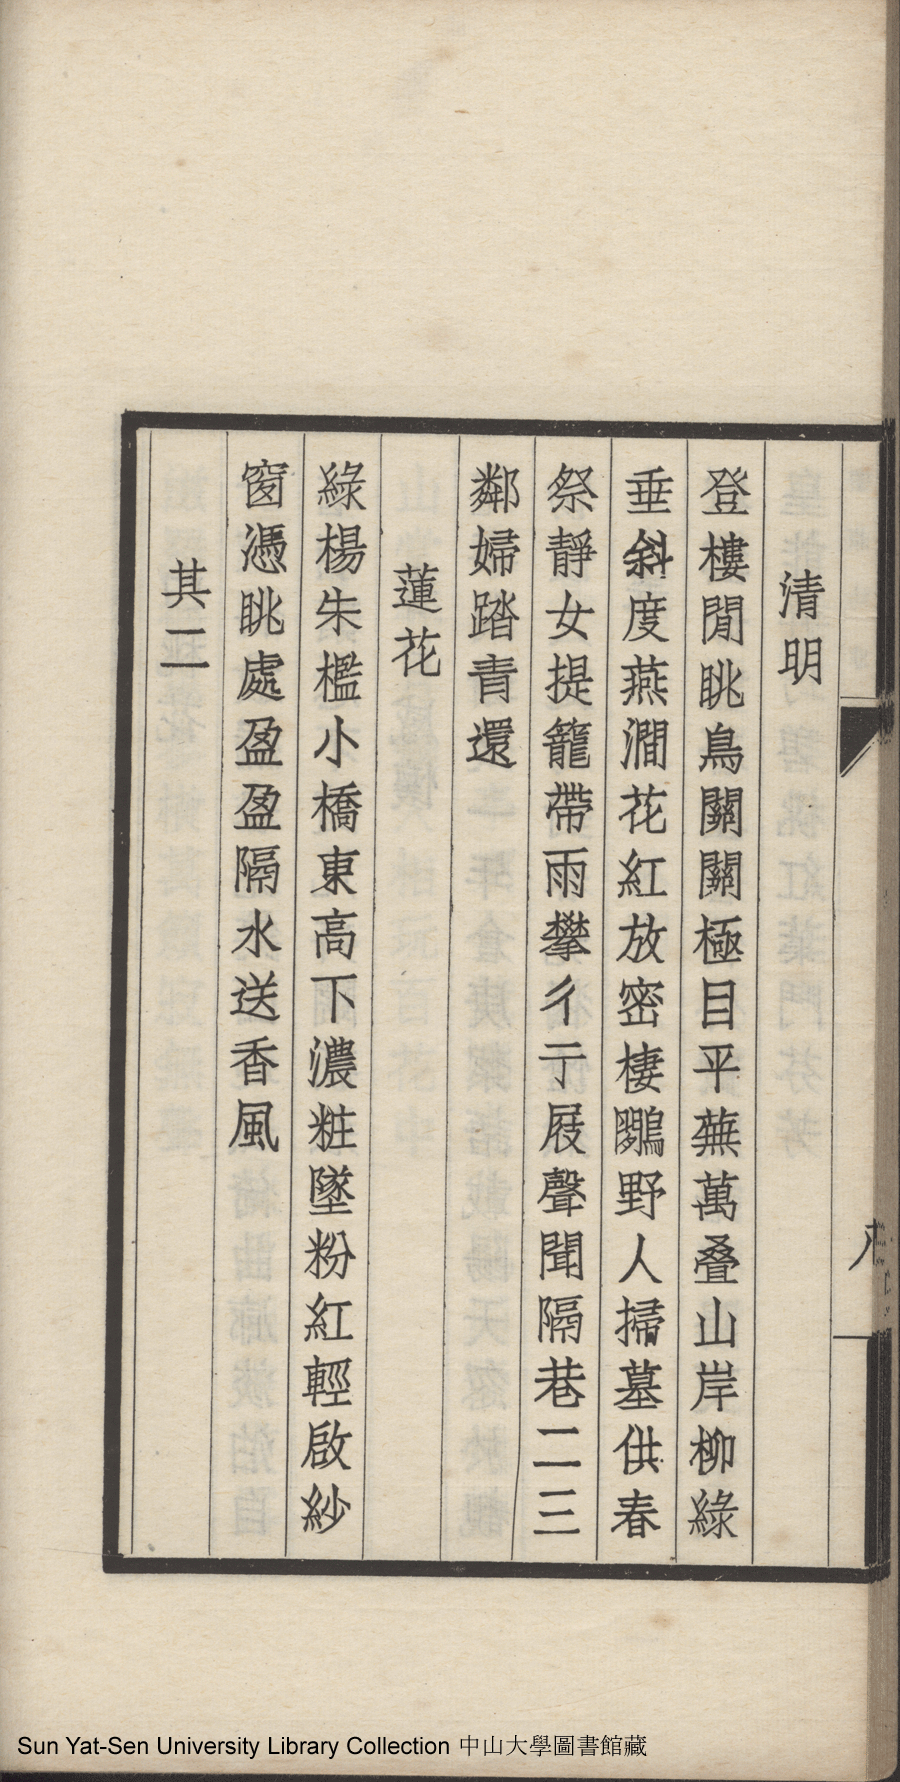 清明
登樓閒眺鳥關關極目平蕪萬叠山岸柳綠
垂斜度燕澗花紅放密棲鷳野人掃墓供春
祭靜女提籠帶雨攀彳亍屐聲聞隔巷二三
鄰婦踏青還
蓮花
綠楊朱檻小橋東高下濃粧墜粉紅輕啟紗
窗憑眺處盈盈隔水送香風
其二
Sun Yat-Sen University Library Collection 中山大學圖書館藏